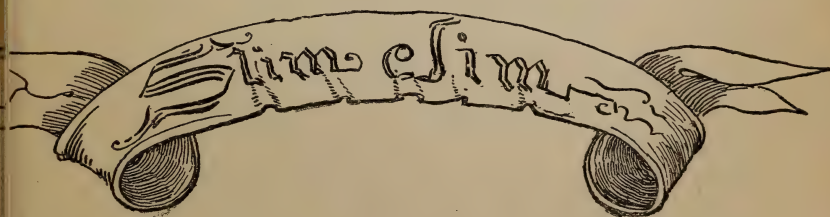 Slim Jim